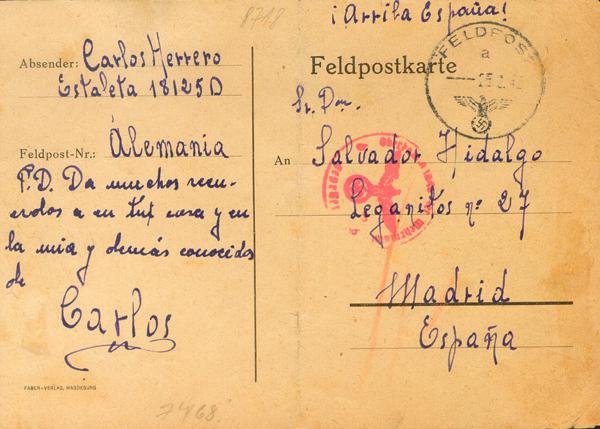 8718
¡Arriba España!
Absender: Carlos Herrero
Estafeta 18125D
Feldpost-Nr.: Alemania
P.D. Da muchos recu-
erdos a en tu casa y en
la mia y demás conocidos
de
Carlos
FABER-VERLAG, MAGDEBURG
7468
Feldpostkarte
FELDPOST
a
Sr. Don
An Salvador Hidalgo
Leganitos nº 27
Madrid
España